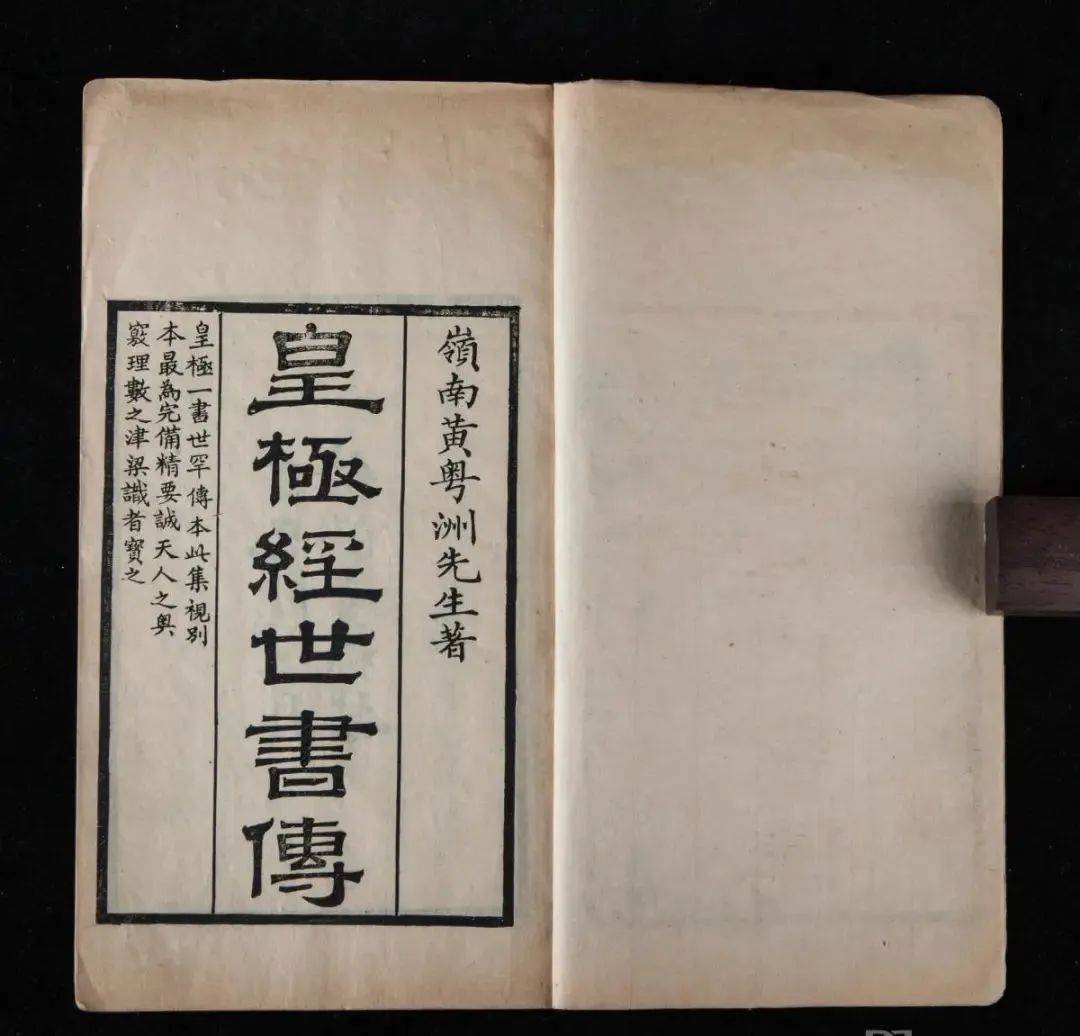 嶺南黃粤洲先生著
皇極經世書傳
皇極一書世罕傳本此集視別
本最為完備精要誠天人之奥
竅理數之津梁識者寳之